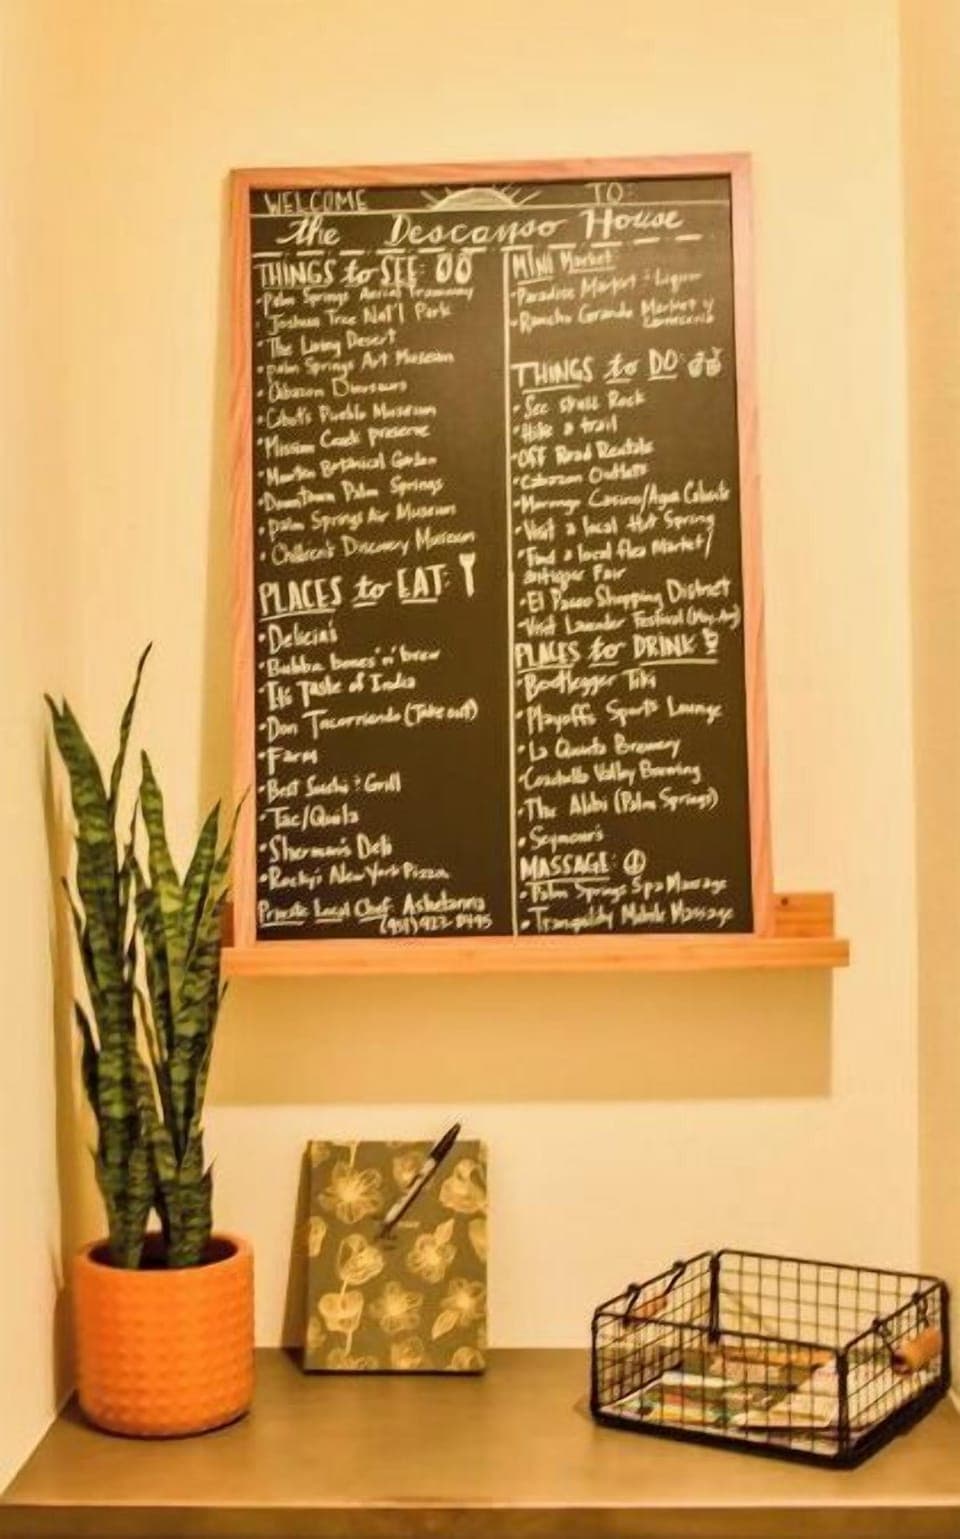 WELCOME TO:
the Descanso House
THINGS to SEE:
• Palm Springs Aerial Tramway
• Joshua Tree Nat'l Park
• The Living Desert
• Palm Springs Art Museum
• Cabazon Dinosaurs
• Cabot's Pueblo Museum
• Mission Creek preserve
• Moorten Botanical Garden
• Downtown Palm Springs
• Palm Springs Air Museum
• Children's Discovery Museum
PLACES to EAT:
• Delicias
• Bubba bones 'n' brew
• It's Taste of India
• Don Tacorriendo (Take out)
• Farm
• Best Sushi & Grill
• Tac/Quila
• Sherman's Deli
• Rocky's New York Pizza
Private Local Chef:
MINI Market:
• Paradise Market & Liquor
• Rancho Grande Market y
Carniceria
THINGS to DO:
• See Skull Rock
• Hike a trail
• Off Road Rentals
• Cabazon Outlets
• Morongo Casino/Agua Caliente
• Visit a local Hot Spring
• Find a local flea market/
antique Fair
• El Paseo Shopping District
• Visit Lavender Festival
PLACES to DRINK:
• Bootlegger Tiki
• Playoffs Sports Lounge
• La Quinta Brewery
• Coachella Valley Brewing
• The Alibi (Palm Springs)
• Seymour's
MASSAGE:
• Palm Springs Spa Massage
• Tranquility Mobile Massage